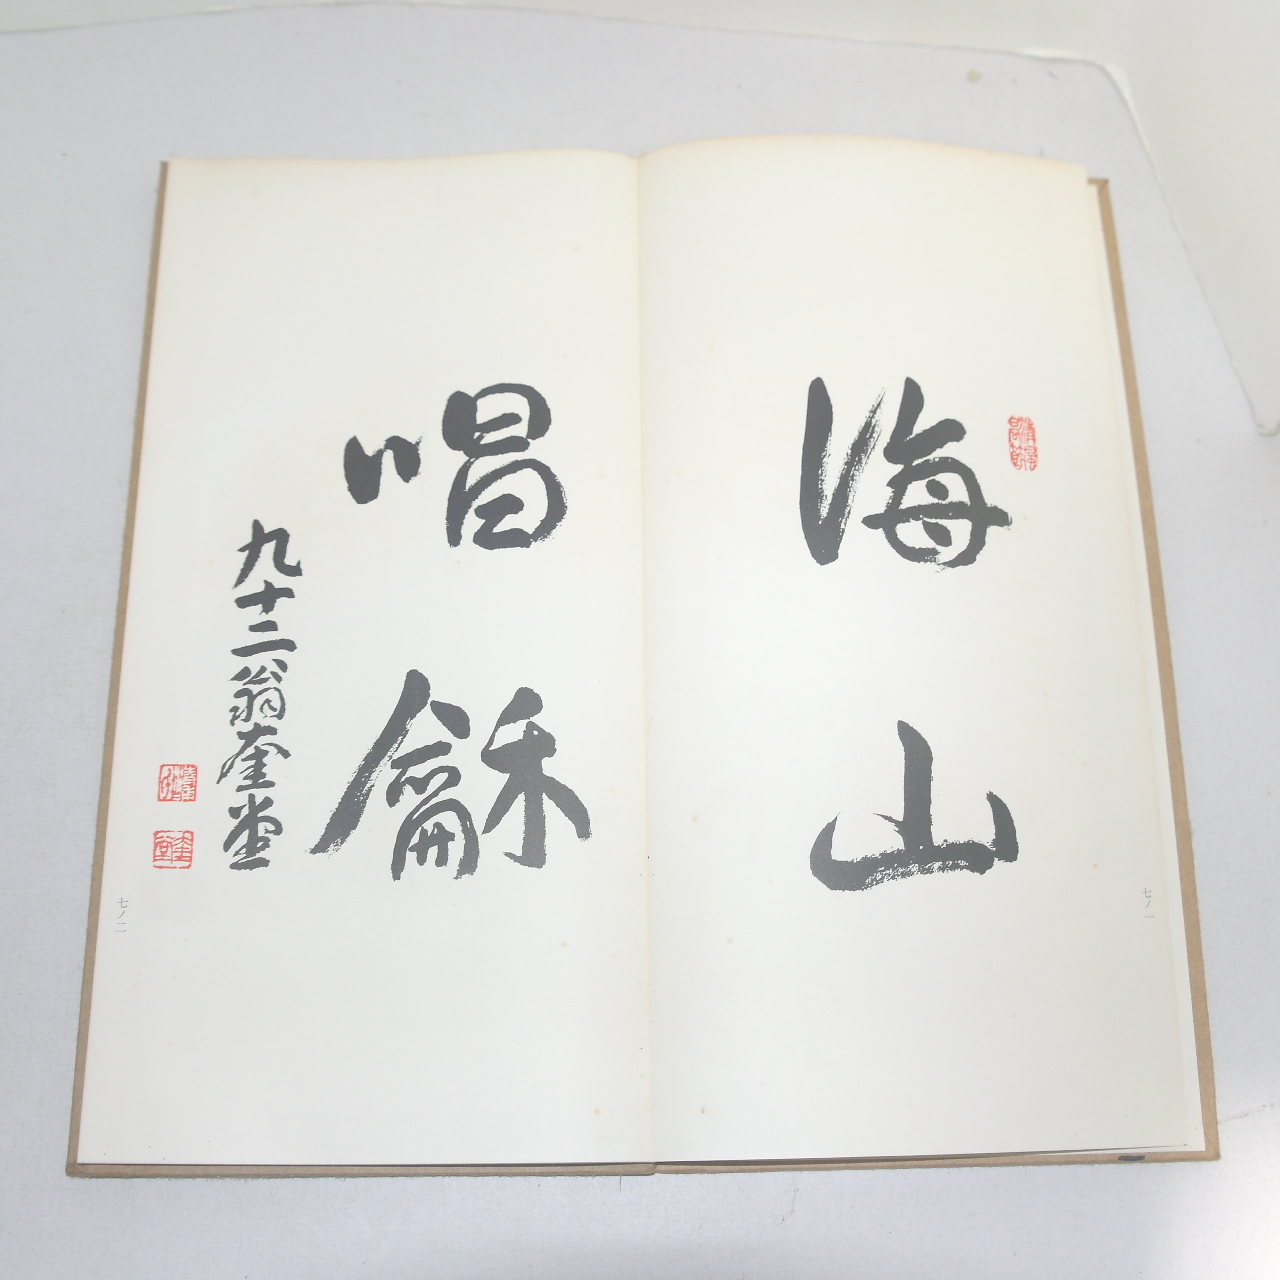 海山
唱龢
九十二翁奎堂
奎堂
七ノ一
七ノ二